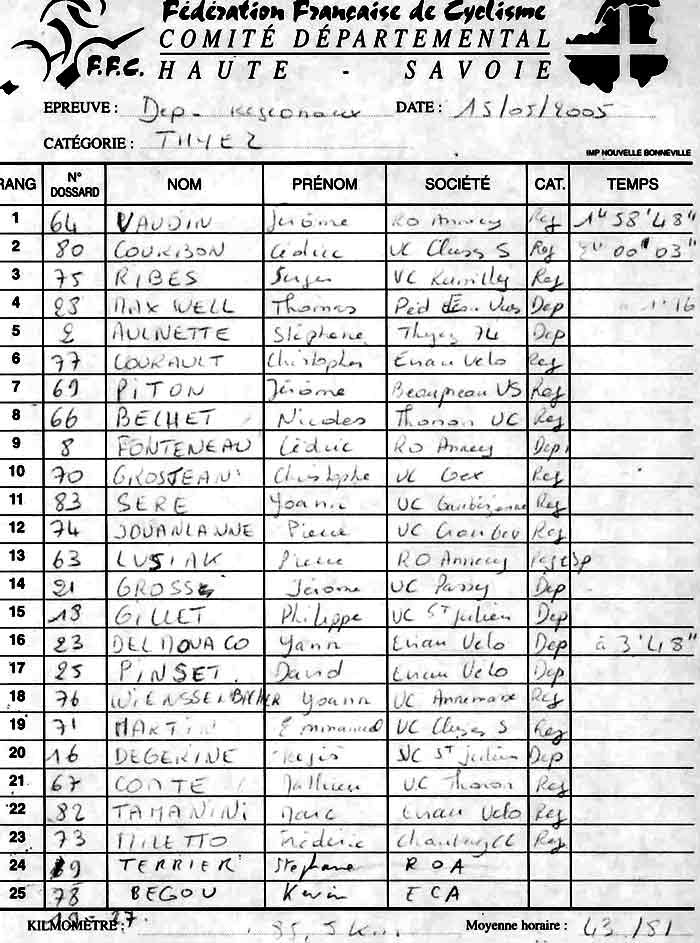 Fédération Française de Cyclisme
COMITÉ DÉPARTEMENTAL
F.F.C. HAUTE - SAVOIE
EPREUVE : Dep- Regionaux DATE : 15/05/2005
CATÉGORIE : THYEZ
IMP NOUVELLE BONNEVILLE
RANG N° DOSSARD NOM PRÉNOM SOCIÉTÉ CAT. TEMPS
1 64 VAUDIN Jérôme RO Annecy Reg 1H 58'48"
2 80 COURIBON Cédric UC Cluses S Reg 2H 00" 03"
3 75 RIBES Serge VC Rumilly Reg
4 28 MAXWELL Thomas Ped Dep à 1'16
5 2 AULNETTE Stéphane Thyez 74 Dep
6 77 COURAULT Christophe Evian Velo Reg
7 69 PITON Jérôme Beaupreau VS Reg
8 66 BECHET Nicolas Thonon UC Reg
9 8 FONTENEAU Cédric RO Annecy Dep
10 70 GROSJEAN Christophe UC Gex Reg
11 83 SERE Yoann UC Reg
12 74 JOUANLANNE Pierre UC Reg
13 63 LUSIAK Pierre RO Annecy
14 21 GROSS Jérome UC Passy Dep
15 18 GILLET Philippe UC St Julien Dep
16 23 DELMONACO Yann Evian Velo Dep à 3'48"
17 25 PINSET David Evian Vélo Dep
18 76 Yoann UC Annemasse Reg
19 71 MARTIN Emmanuel UC Cluses S Reg
20 16 DEGERINE Régis UC St Julien Dep
21 67 COMTE Mathieu UC Thonon Reg
22 82 TAMANINI Marc Evian Velo Reg
23 73 MILETTO Frédéric Chambery CC Reg
24 TERRIER Stephane ROA
25 78 BEGOU Kevin ECA
KILMOMÈTRE : 85,5 km Moyenne horaire : 43/51